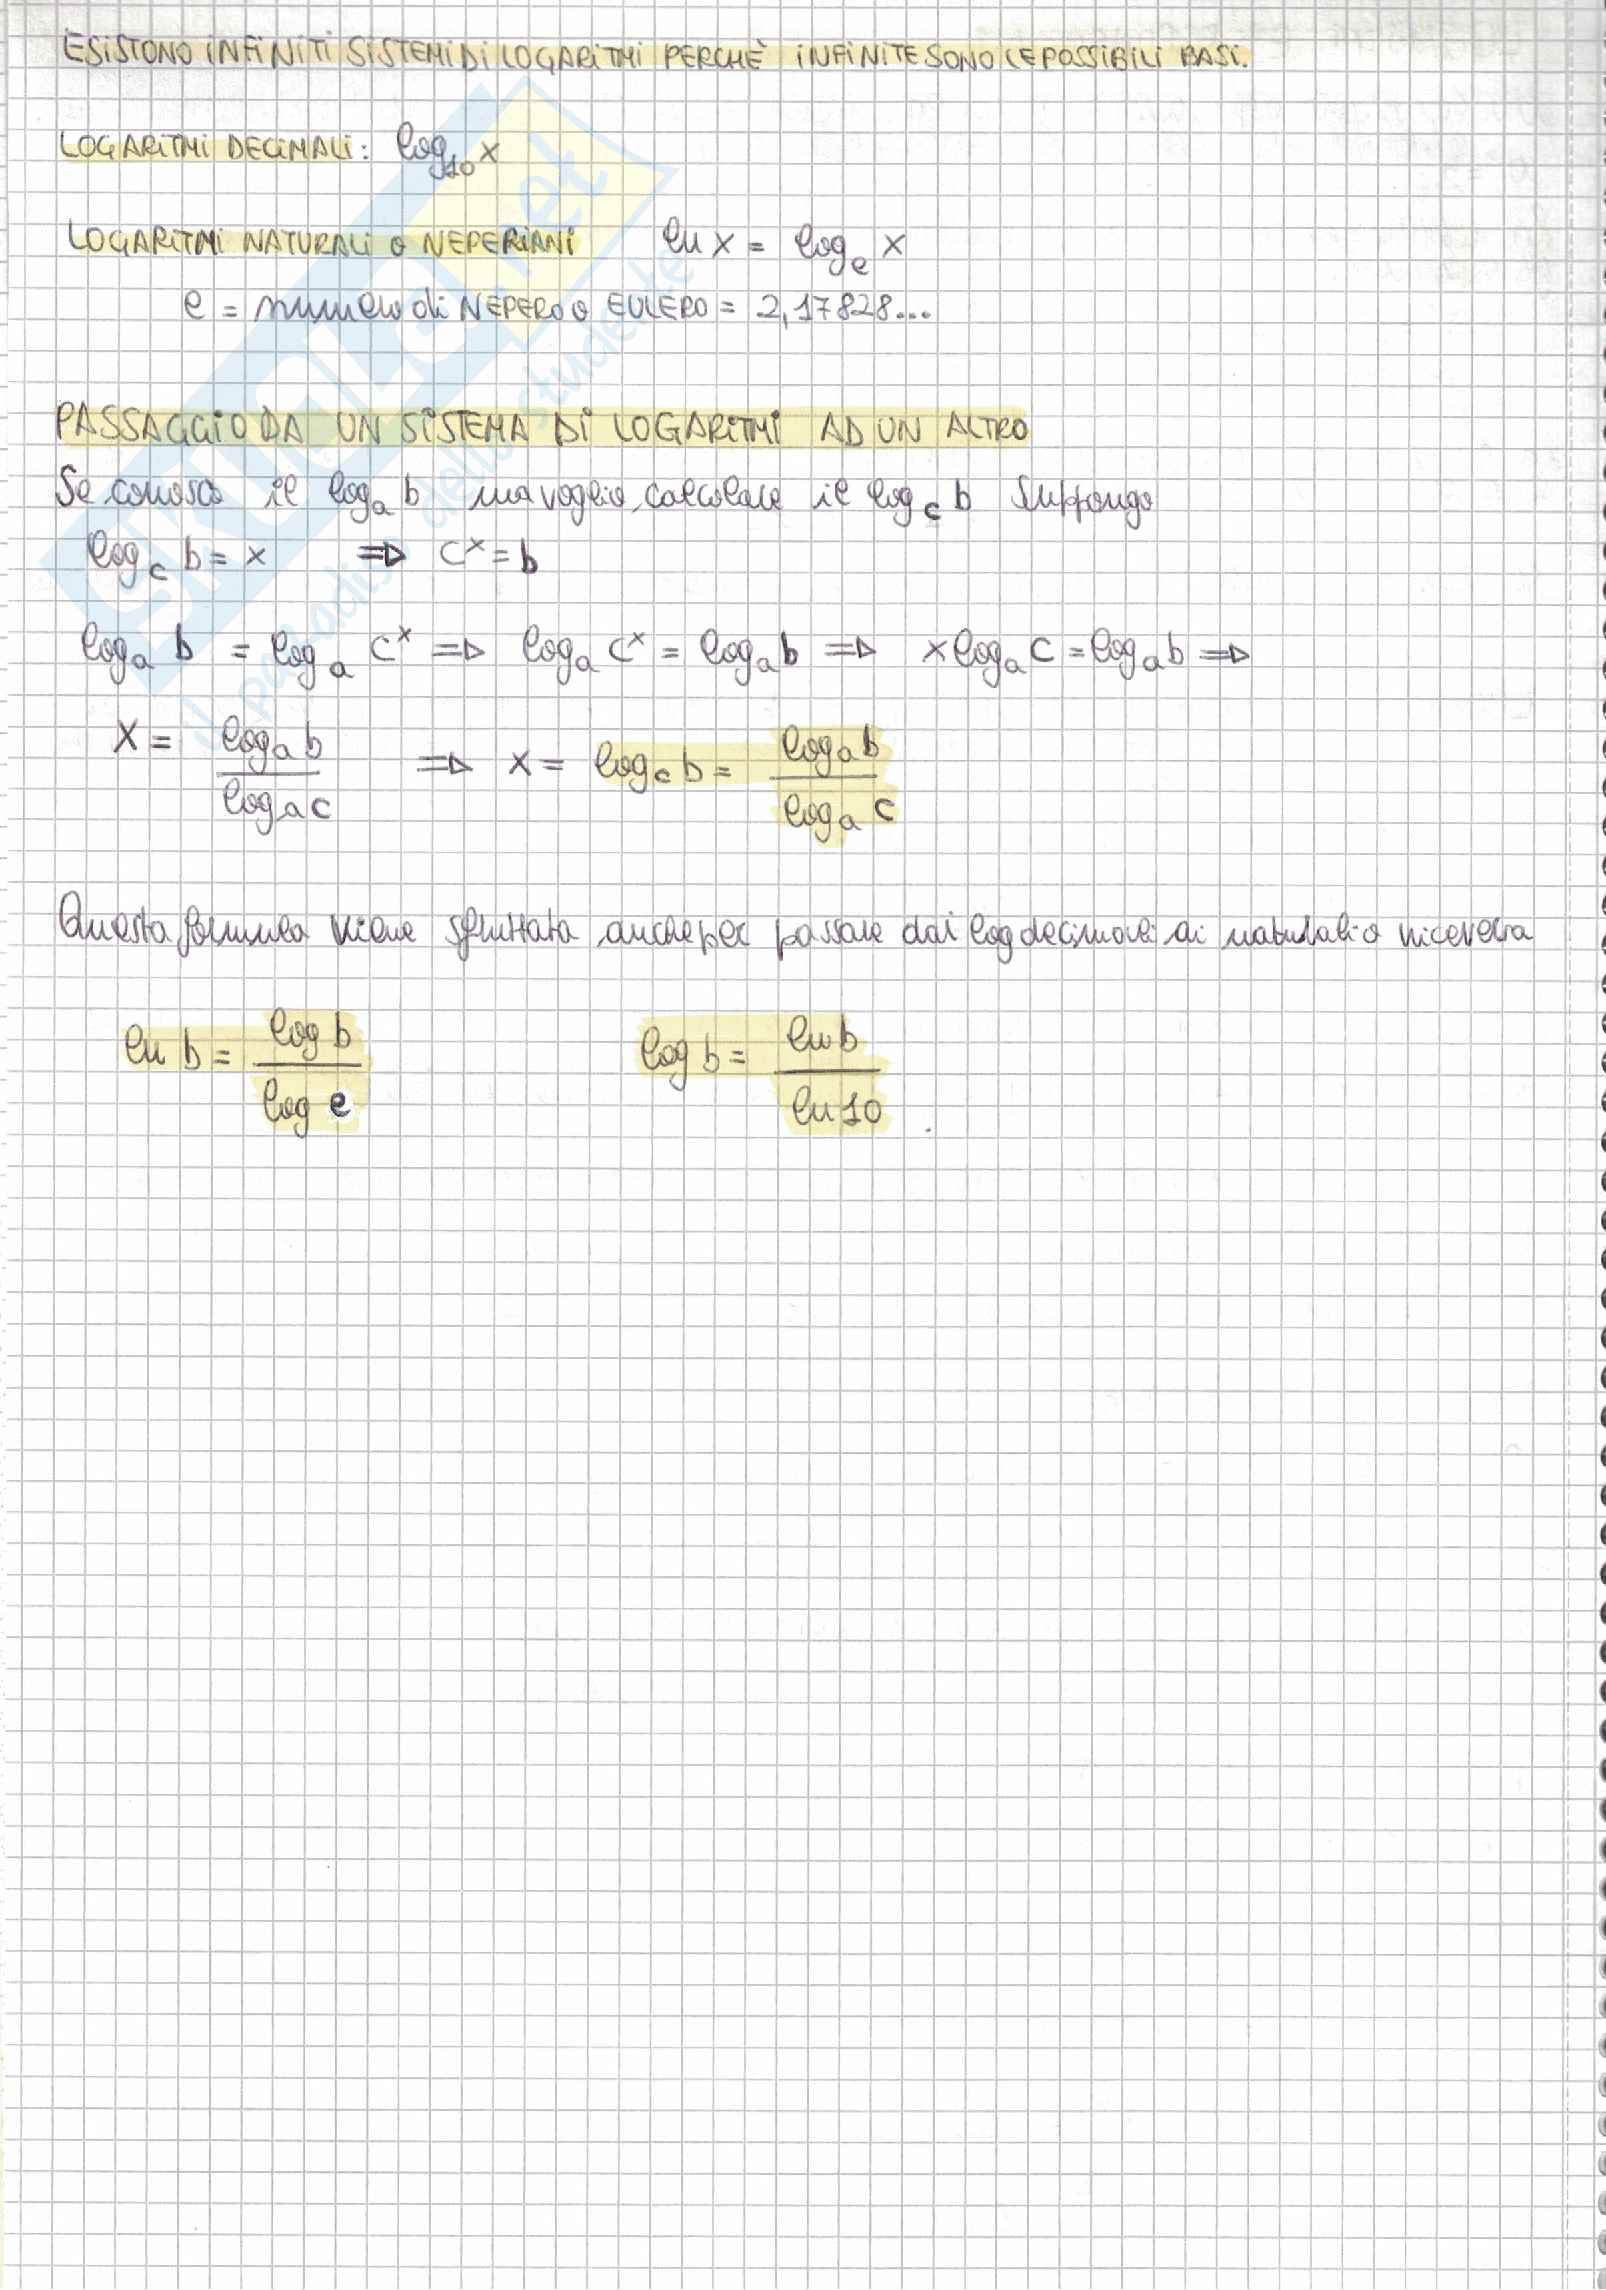 ESISTONO INFINITI SISTEMI DI LOGARITMI PERCHÈ INFINITE SONO LE POSSIBILI BASI.
LOGARITMI DECIMALI: log₁₀ x
LOGARITMI NATURALI O NEPERIANI ln x = logₑ x
e = numero di NEPERO O EULERO = 2,17828...
PASSAGGIO DA UN SISTEMA DI LOGARITMI AD UN ALTRO
Se conosco il logₐ b ma voglio calcolare il log_c b suppongo
log_c b = x ⇒ cˣ = b
logₐ b = logₐ cˣ ⇒ logₐ cˣ = logₐ b ⇒ x logₐ c = logₐ b ⇒
x = logₐ b / logₐ c ⇒ x = log_c b = logₐ b / logₐ c
Questa formula viene sfruttata anche per passare dai log decimali ai naturali o viceversa
ln b = log b / log e log b = ln b / ln 10
skuola.net
il paradiso dello studente